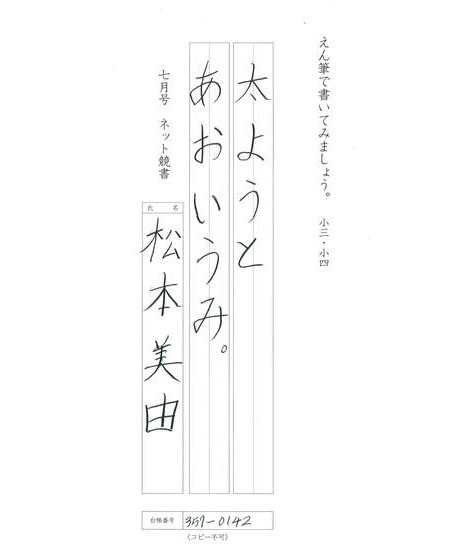 えん筆で書いてみましょう。 小三・小四
太ようと
あおいうみ。
七月号 ネット競書
氏名
松本美由
台帳番号 357-0142
(コピー不可)